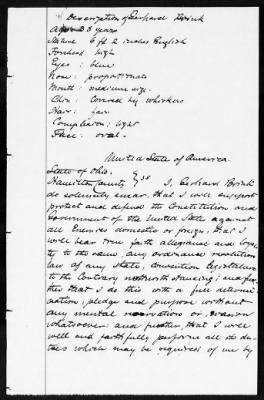 Description of Gerhard Brink
Age 28 years
Stature 6 ft 2 inches English
Forehead high
Eyes: blue
nose: proportionate
Mouth: medium size.
Chin: Covered by whiskers
Hair: fair
Complexion: light
Face: oval.
United State of America.
State of Ohio. }
Hamilton County } ss I, Gerhard Brink
do solemnly swear, that I will support
protect and defend the Constitution and
Government of the United States against
all Enemies domestic or foreign; that I
will bear true faith allegiance and loyal
ty to the same, any ordinance resolution
law of any State, Convention Legislature
to the Contrary notwithstanding; and fur
ther that I do this with a full determi
nation, pledge and purpose without
any mental reservation or evasion
whatsoever: and further, that I will
well and faithfully perform all the du-
ties which may be required of me by